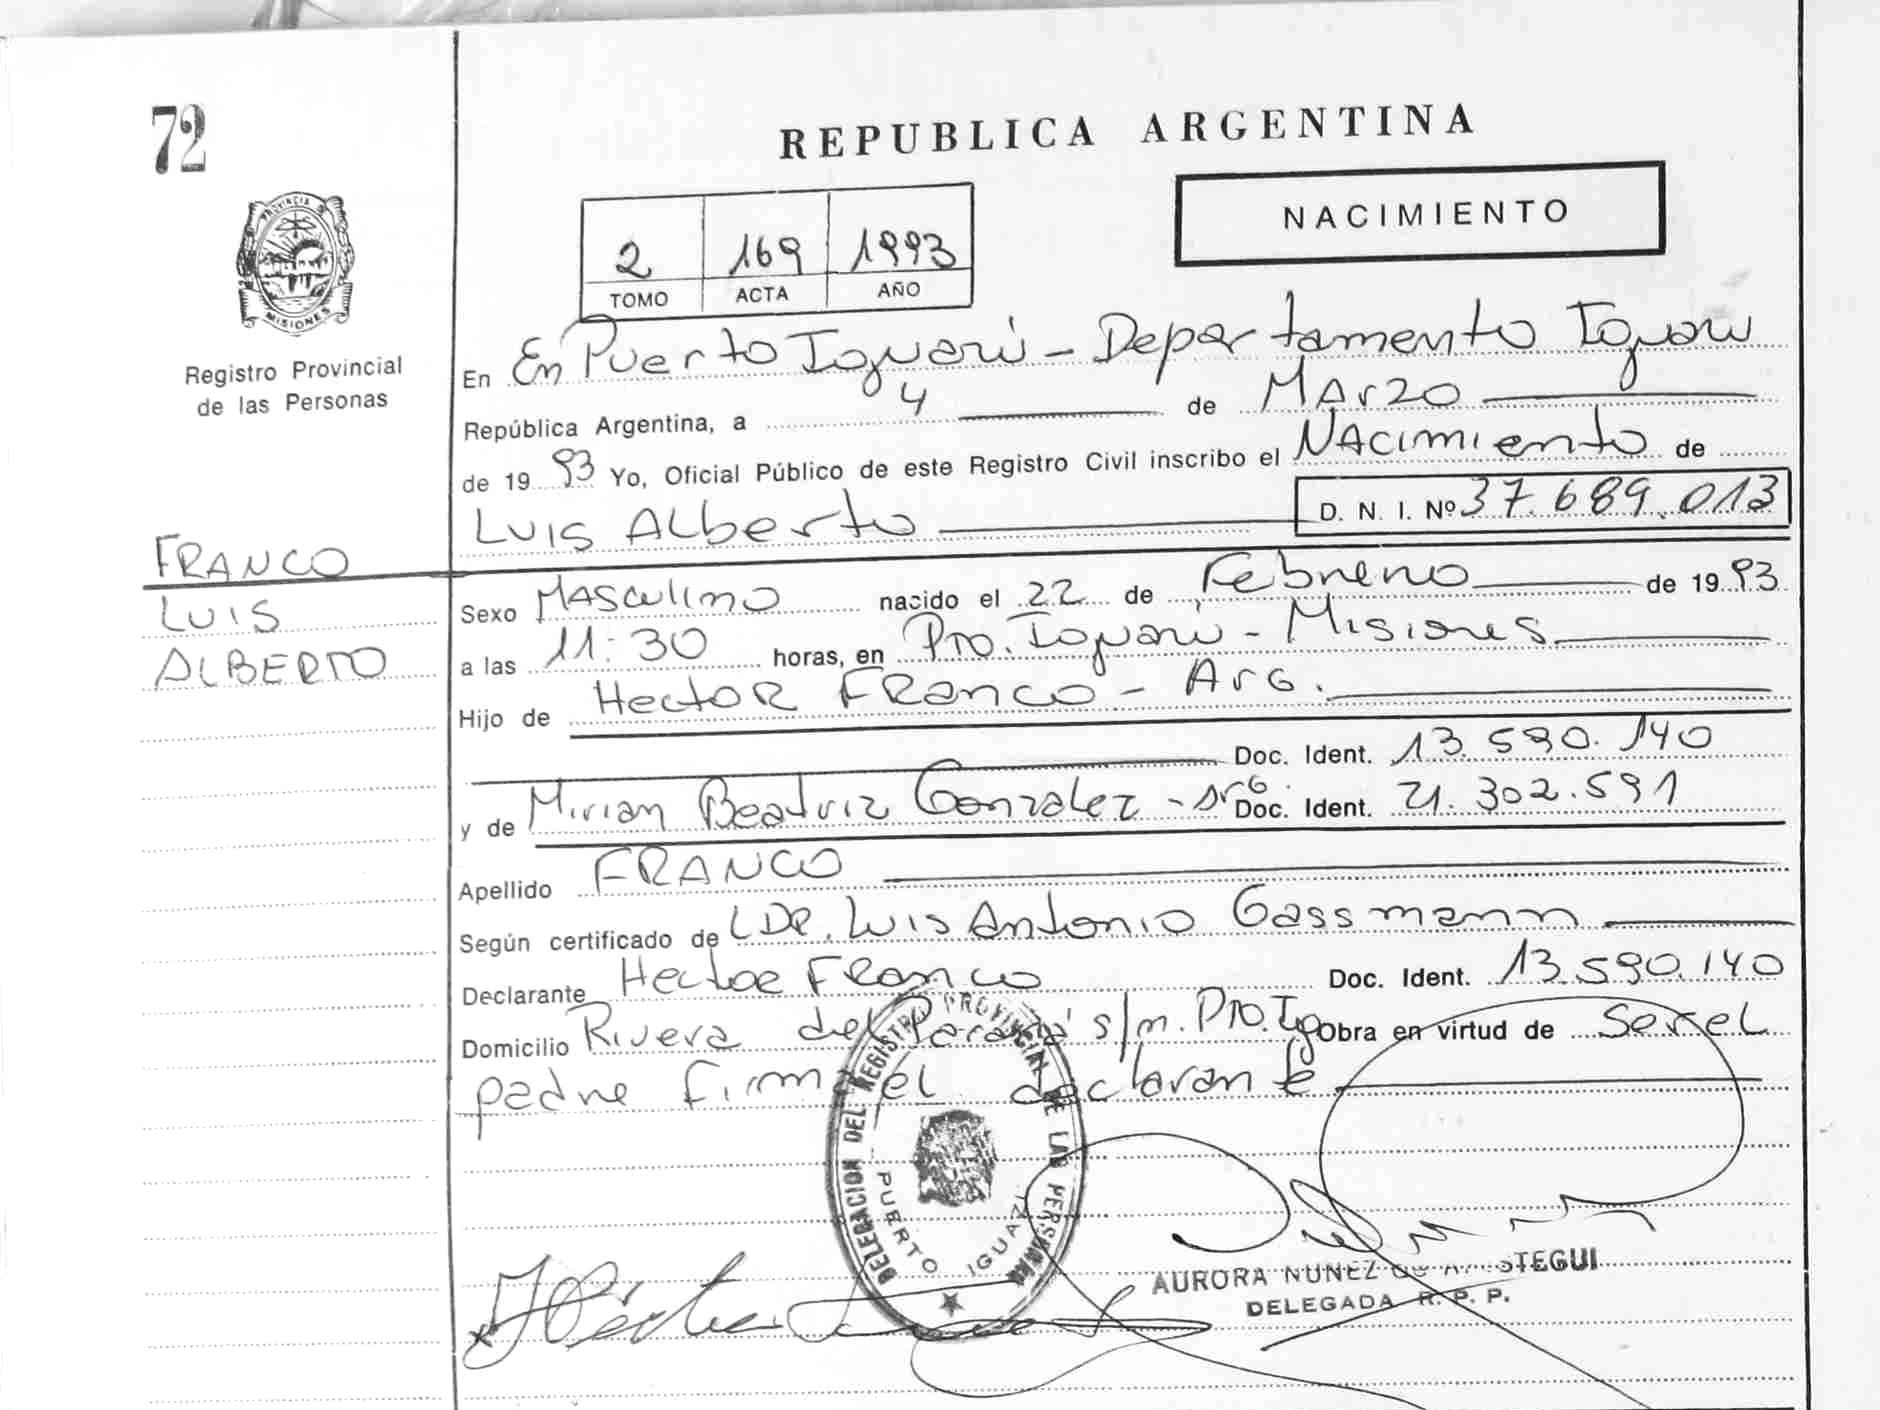 72
REPUBLICA ARGENTINA
NACIMIENTO
2 169 1993
TOMO ACTA AÑO
PROVINCIA DE
MISIONES
Registro Provincial
de las Personas
En En Puerto Iguazú - Departamento Iguazú
República Argentina, a 4 de Marzo
de 1993 Yo, Oficial Público de este Registro Civil inscribo el Nacimiento de
Luis Alberto D. N. I. Nº 37.689.013
FRANCO
LUIS
ALBERTO
Sexo Masculino nacido el 22 de Febrero de 1993
a las 11:30 horas, en Pto. Iguazú - Misiones
Hijo de Hector Franco - Arg.
Doc. Ident. 13.590.140
y de Mirian Beatriz Gonzalez - Arg. Doc. Ident. 21.302.591
Apellido FRANCO
Según certificado de Dr. Luis Antonio Gassmann
Declarante Hector Franco Doc. Ident. 13.590.140
Domicilio Rivera del Paraná s/n. Pto. Ig Obra en virtud de ser el
padre firma el declarante
DELEGACION DEL REGISTRO PROVINCIAL DE LAS PERSONAS
PUERTO IGUAZU
AURORA NUÑEZ de
DELEGADA R. P. P.